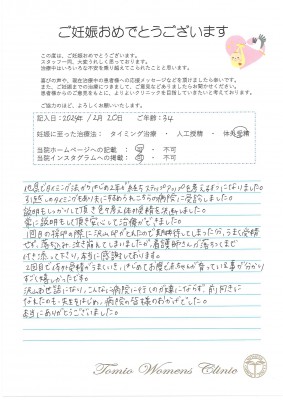 ご妊娠おめでとうございます
この度は、ご妊娠おめでとうございます。
スタッフ一同、大変うれしく思っております。
治療中はいろいろな不安を乗り越えてこられたことと思います。
喜びの声や、現在治療中の患者様への応援メッセージなどを頂けましたら幸いです。
また、ご妊娠までの治療につきまして、ご意見などありましたらお聞かせください。
患者様からのご意見をもとに、よりよいクリニックを目指していきたいと考えております。
ご協力のほど、よろしくお願いいたします。
記入日：2024年 12月20日 ご年齢：34
妊娠に至った治療法： タイミング治療 ・ 人工授精 ・ 体外受精
当院ホームページへの記載： 可 ・ 不可
当院インスタグラムへの掲載： 可 ・ 不可
地元でタイミング法から はじめ2年が経ちステップアップを考えるようになりました。
引越しのタイミングも
こちらの病院に受診しました。
説明もしっかりして頂き
体外受精を決断しました。
常に説明をして頂き安心して治療ができました。
1回目の採卵の際に沢山卵がとれたので期待してしまった分、うまく受精
せず、落ち込み泣き崩れてしまいましたが、看護師さんが落ちつくまで
付き添って下さり、本当に感謝しております。
2回目で体外受精がうまくいき、はじめてお腹に赤ちゃんが育っている事が分かり
すごく嬉しかったです。
沢山お世話になり、こんなに病院に行くのが嫌にならず、前向きに
なれたのも、夫をはじめ、病院の皆様のおかげでした。
本当にありがとうございました。
Tomio Womens Clinic